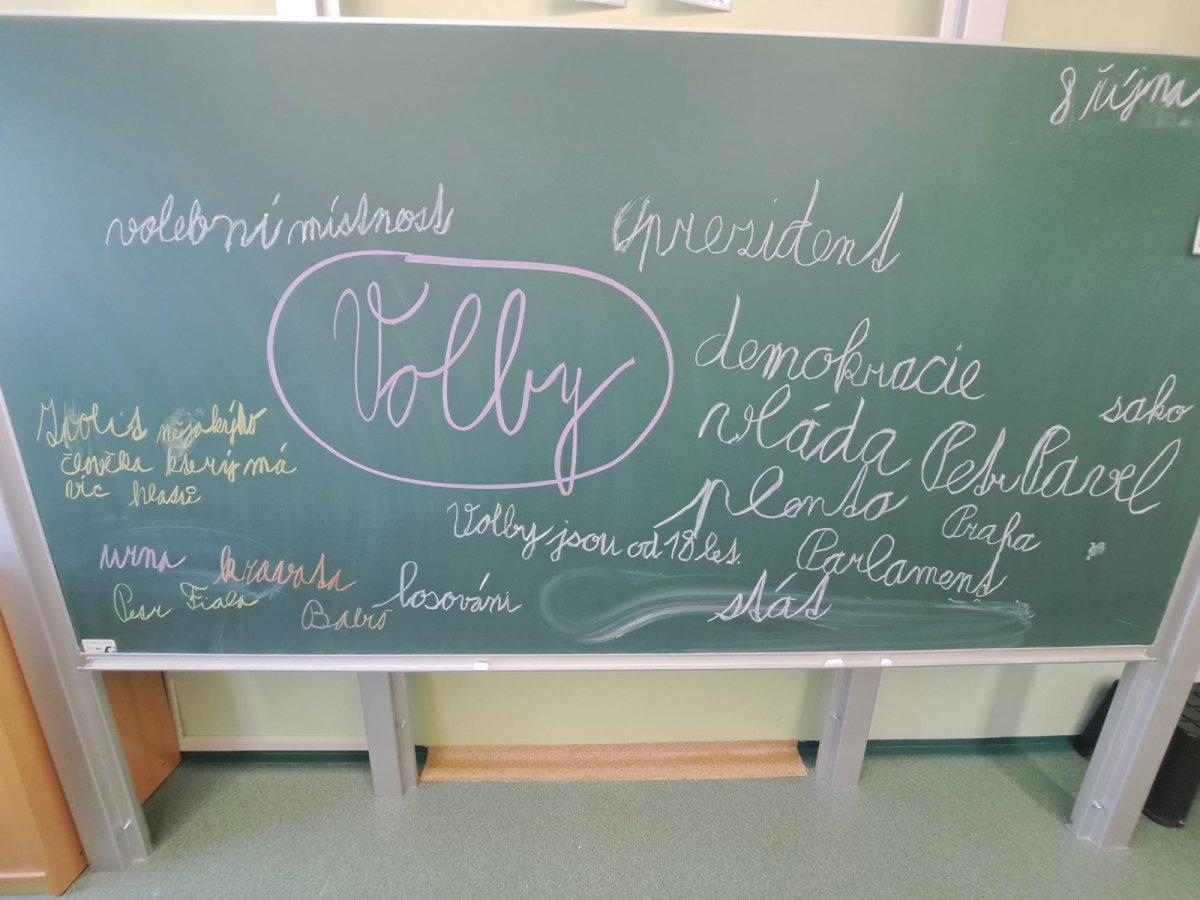 8 října
volební místnost
prezident
Volby
demokracie
sako
vláda
Petr Pavel
nějakýho
člověka který má
víc hlasů
plento
Praha
Volby jsou od 18 let.
Parlament
urna
kravata
losování
stát
Petr Fiala
Babiš